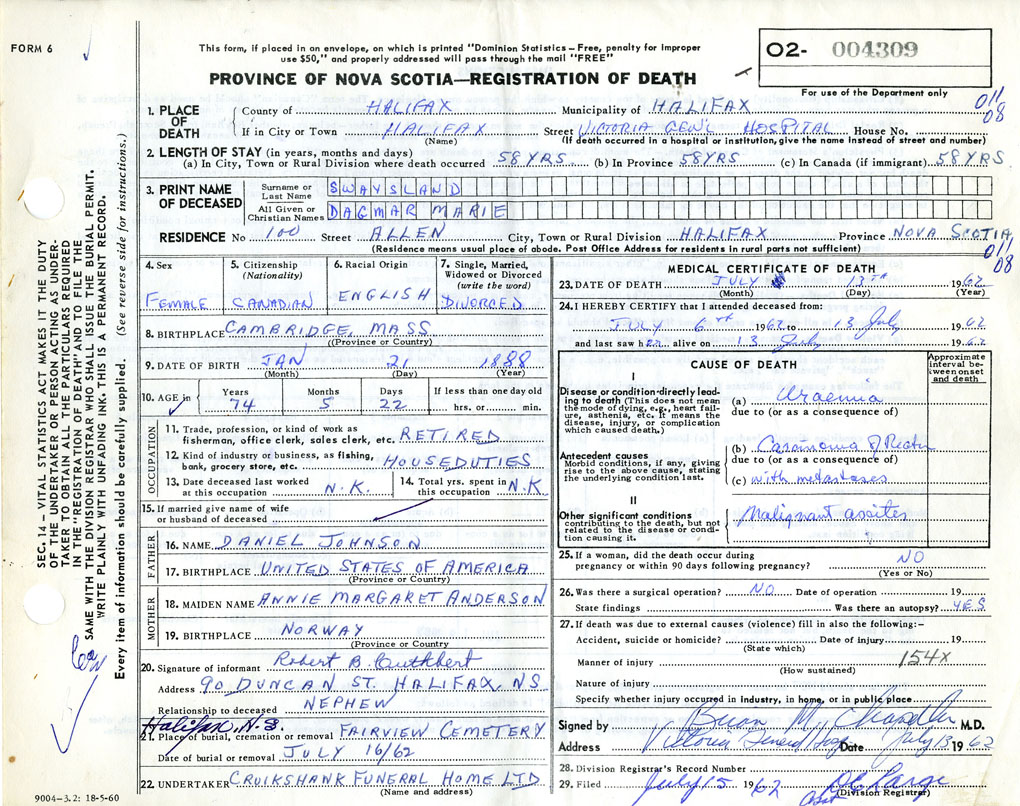 FORM 6
This form, if placed in an envelope, on which is printed "Dominion Statistics – Free, penalty for improper
use $50," and properly addressed will pass through the mail "FREE"
PROVINCE OF NOVA SCOTIA—REGISTRATION OF DEATH
O2- 004309
For use of the Department only
011
08
1. PLACE OF DEATH
County of HALIFAX Municipality of HALIFAX
If in City or Town HALIFAX Street VICTORIA GEN'L HOSPITAL House No.
(Name) (If death occurred in a hospital or institution, give the name instead of street and number)
2. LENGTH OF STAY (in years, months and days)
(a) In City, Town or Rural Division where death occurred 58 YRS (b) In Province 58 YRS (c) In Canada (if immigrant) 58 YRS
3. PRINT NAME OF DECEASED
Surname or Last Name SWAYSLAND
All Given or Christian Names DAGMAR MARIE
RESIDENCE No 100 Street ALLEN City, Town or Rural Division HALIFAX Province NOVA SCOTIA
(Residence means usual place of abode. Post Office Address for residents in rural parts not sufficient)
011
08
4. Sex FEMALE
5. Citizenship (Nationality) CANADIAN
6. Racial Origin ENGLISH
7. Single, Married, Widowed or Divorced (write the word) DIVORCED
8. BIRTHPLACE CAMBRIDGE, MASS
(Province or Country)
9. DATE OF BIRTH JAN 21 1888
(Month) (Day) (Year)
10. AGE in Years 74 Months 5 Days 22 If less than one day old hrs. or min.
OCCUPATION
11. Trade, profession, or kind of work as
fisherman, office clerk, sales clerk, etc. RETIRED
12. Kind of industry or business, as fishing,
bank, grocery store, etc. HOUSEDUTIES
13. Date deceased last worked
at this occupation N.K.
14. Total yrs. spent in
this occupation N.K.
15. If married give name of wife
or husband of deceased
FATHER
16. NAME DANIEL JOHNSON
17. BIRTHPLACE UNITED STATES OF AMERICA
(Province or Country)
MOTHER
18. MAIDEN NAME ANNIE MARGARET ANDERSON
19. BIRTHPLACE NORWAY
(Province or Country
20. Signature of informant Robert B. Cuthbert
Address 90 DUNCAN ST. HALIFAX, NS
Relationship to deceased NEPHEW
Halifax, N.S.
21. Place of burial, cremation or removal FAIRVIEW CEMETERY
Date of burial or removal JULY 16/62
22. UNDERTAKER CRUIKSHANK FUNERAL HOME LTD
(Name and address)
9004-3.2: 18-5-60
MEDICAL CERTIFICATE OF DEATH
23. DATE OF DEATH JULY 13TH 1962
(Month) (Day) (Year)
24. I HEREBY CERTIFY that I attended deceased from:
JULY 6TH 1962 to 13 July 1962
and last saw her alive on 13 July 1962
CAUSE OF DEATH
Approximate interval between onset and death
I
Disease or condition directly leading to death (This does not mean
the mode of dying, e.g., heart failure, asthenia, etc. It means the
disease, injury, or complication
which caused death.)
(a) Uraemia
due to (or as a consequence of)
Antecedent causes
Morbid conditions, if any, giving
rise to the above cause, stating
the underlying condition last.
(b) Carcinoma of Rectum
due to (or as a consequence of)
(c) with metastases
II
Other significant conditions
contributing to the death, but not
related to the disease or condition causing it.
Malignant ascites
25. If a woman, did the death occur during
pregnancy or within 90 days following pregnancy? NO
(Yes or No)
26. Was there a surgical operation? NO Date of operation 19
State findings Was there an autopsy? YES
27. If death was due to external causes (violence) fill in also the following:–
Accident, suicide or homicide? Date of injury 19
(State which)
Manner of injury 154X
(How sustained)
Nature of injury
Specify whether injury occurred in industry, in home, or in public place
Signed by Brian M. Chandler M.D.
Address Victoria General Hosp Date July 13 1962
28. Division Registrar's Record Number
29. Filed July 15 1962
(Division Registrar)
Asst
SEC. 14 – VITAL STATISTICS ACT MAKES IT THE DUTY
OF THE UNDERTAKER OR PERSON ACTING AS UNDERTAKER TO OBTAIN ALL THE PARTICULARS REQUIRED
IN THE "REGISTRATION OF DEATH" AND TO FILE THE
SAME WITH THE DIVISION REGISTRAR WHO SHALL ISSUE THE BURIAL PERMIT.
WRITE PLAINLY WITH UNFADING INK. THIS IS A PERMANENT RECORD.
Every item of information should be carefully supplied. (See reverse side for instructions.)